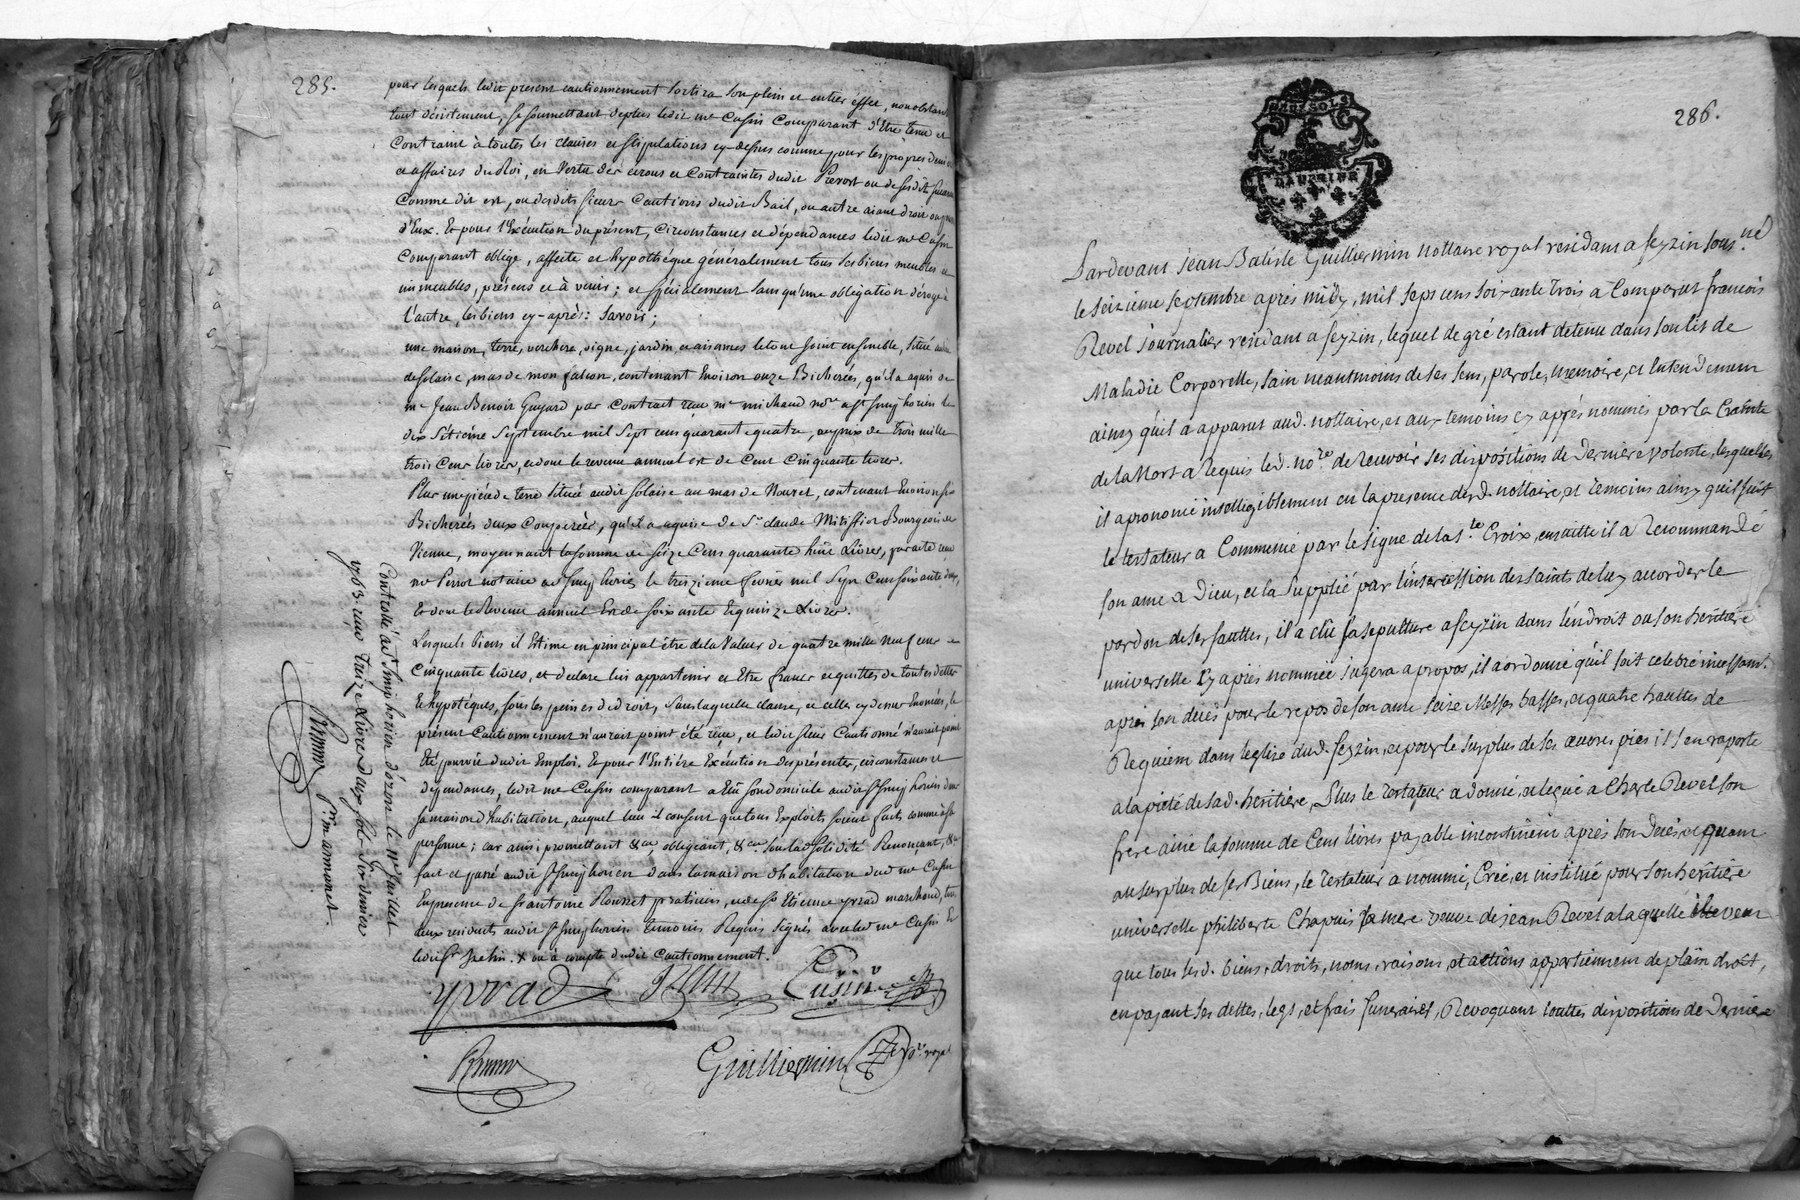 285.
pour lesquels ledit present cautionnement sortira son plein et entier effet, nonobstant
tout désistement, se soumettant deplus ledit me Cusin Comparant d'Etre tenu et
Contraint à toutes les clauses et stipulations cy-dessus comme pour les propres deniers
et affaires du Roi, en Vertu des écrous et Contraintes dudit Prevost ou de
Comme dit est, ou desdits sieurs Cautions dudit Bail, ou autre aiant droit
d'Eux. Et pour l'Exécution du présent, Circonstances et dépendances ledit me Cusin
Comparant oblige, affecte et hypothéque généralement tous ses biens meubles et
immeubles, présens et à venir; et spécialement sans qu'une obligation déroge à
l'autre, les biens cy-après: Savoir;
une maison, terre, verchere, vigne, jardin, et aisances le tout joint ensemble, situé
de solaise, mas de mon falcon, contenant Environ onze Bicherées, qu'il a aquis de
me Jean Benoit Guyard par Contract reçu me michaud nore a St simphorien le
dix Septieme Septembre mil Sept cens quarante quatre, au prix de trois mille
trois Cens livres, et dont le revenu annuel est de Cent Cinquante livres.
Plus une piéce de terre située audit solaise au mas de Nouret, contenant Environ six
Bicherées deux Couperées, qu'il a aquise de Sr claude Mitiffiot Bourgeois de
Vienne, moyennant la somme de seize Cens quarante huit Livres, par acte reçu
me Perrot notaire a St simphorien le treizieme fevrier mil Sept Cens soixante deux,
Et dont le Revenu annuel Est de soixante Et quinze Livres.
Lesquels biens il Estime en principal être de la Valeur de quatre mille neuf cens
Cinquante livres, et declare lui appartenir et Etre francs et quittes de toutes dettes
Et hypotéques, sous les peines de droit, sans laquelle clause, et celles cy dessus Enoncées, le
présent Cautionnement n'auroit point été reçu, et ledit sieur Cautionné n'auroit point
Eté pourvû dudit Emploi. Et pour l'Entière Exécution des présentes, circonstances et
dépendances, ledit me Cusin comparant a Elû son domicile audit St simphorien dans
sa maison d'habitation, auquel lieu il consent que tous Exploits soient faits comme à sa
personne; car ainsi; promettant &ca, obligeant, &ca, sous lad solidité Renonçant, &ca
fait et passé audit St simphorien dans la maison d'habitation dud me Cusin
En presence de sr antoine praticien, et de sr Etienne yvrad marchand, tous
deux residants audit St simphorien temoins Requis signés avec led me Cusin Et
ledit Sr + ou à compte dudit Cautionnement.
yvrad Cusin
Guilliermin Nore royal
Brunier
Controllé a St Simphorien d'ozon le juillet
1763. reçu treize Livres deux sols six deniers
Brunier pr m armanet.
286.
DEUX SOLS
DAUPHINE
Pardevant jean Batiste Guilliermin nottaire royal residant a feyzin sousné
le seizieme septembre après midy, mil sept cens soixante trois a Comparut francois
Revel journalier residant a feyzin, lequel de gré estant detenu dans son lit de
Maladie Corporelle, sain neantmoins de ses sens, parole, memoire, et Entendement
ainsy qu'il a apparut aud. nottaire, et aux temoins cy après nommés par la Crainte
de la Mort a requis led. nore de recevoir ses dispositions de derniere volonté, lesquelles
il a prononcé intelligiblement en la presence dud. nottaire, et temoins ainsy quil suit
le testateur a Commencé par le signe de la ste Croix, ensuitte il a recommandé
son ame a Dieu, et la supplié par l'intercession des saints de luy accorder le
pardon de ses fauttes, il a elû sa sepulture a feyzin dans l'endroit ou son heritiere
universelle cy après nommée jugera a propos, il a ordonné qu'il soit celebré incessamt.
après son deces pour le repos de son ame seize Messes basses, et quatre hauttes de
Requiem dans leglise dud. feyzin, et pour le surplus de ses œuvres pies il s'en raporte
a la pieté de sad. heritiere, Plus le testateur a donné, et legué a Charle Revel son
frere ainé la somme de Cent livres payable incontinent après son deces, et quant
au surplus de ses Biens, le testateur a nommé, Créé, et institué pour son heritiere
universelle philiberte Chapuis sa mere veuve de jean Revel a laquelle il veut
que tous lesd. biens, droits, noms, raisons, et actions appartiennent de plain droit,
en payant ses dettes, legs, et frais funeraires, Revoquant touttes dispositions de derniere